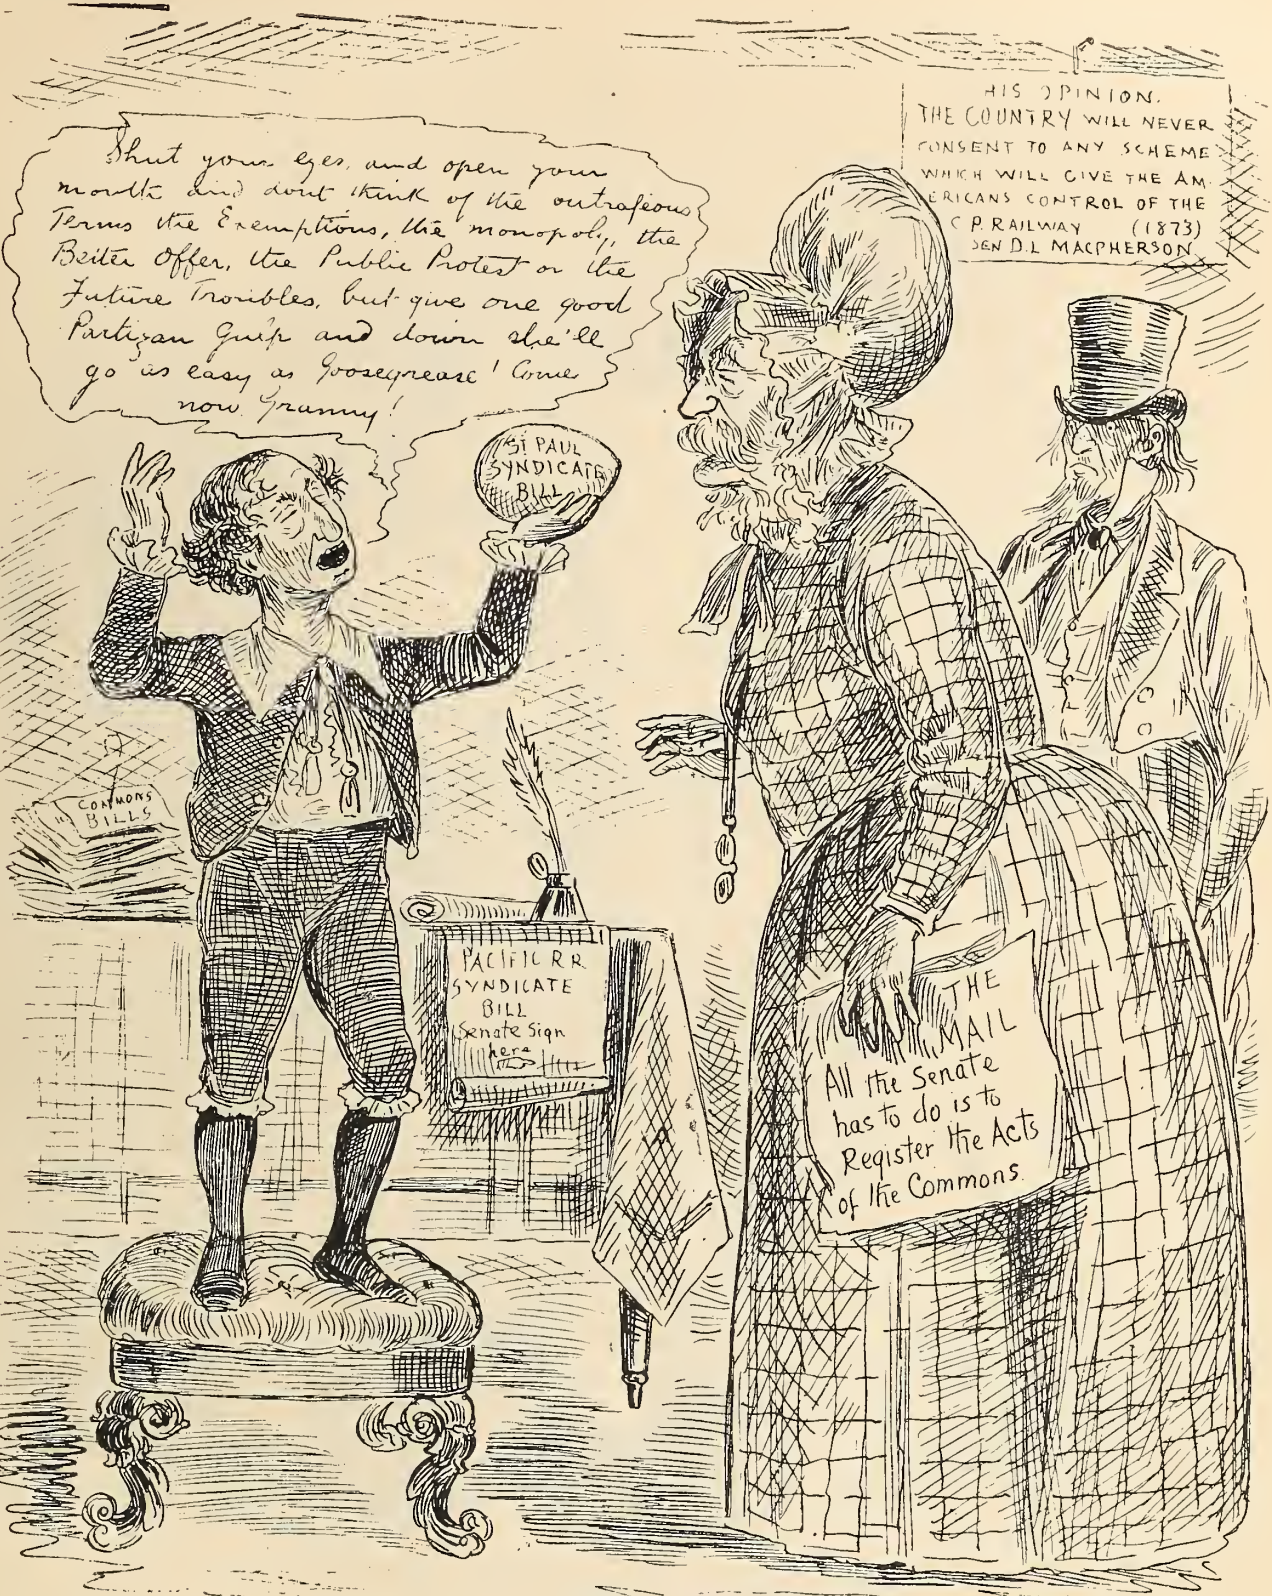 Shut your eyes, and open your
mouth and dont think of the outrageous
Terms the Exemptions, the monopoly, the
Better Offer, the Public Protest or the
Future Troubles, but give one good
Partizan Gulp and down she'll
go as easy as Goosegrease! Come
now Granny!
HIS OPINION.
THE COUNTRY WILL NEVER
CONSENT TO ANY SCHEME
WHICH WILL GIVE THE AM-
ERICANS CONTROL OF THE
C P. RAILWAY (1873)
SEN D.L. MACPHERSON
ST PAUL
SYNDICATE
BILL
COMMONS
BILLS
PACIFIC R R
SYNDICATE
BILL
Senate Sign
here
THE
MAIL
All the Senate
has to do is to
Register the Acts
of the Commons.